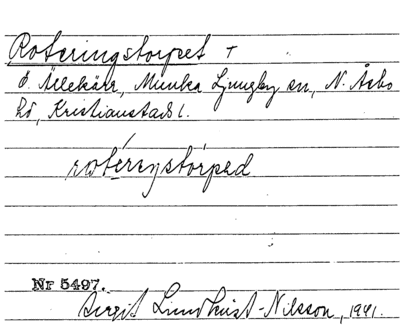 Roteringstorpet +
d. Ällekärr, Munka Ljungby sn., N. Åsbo
hd, Kristianstads l.
rotéreŋstòrpəd
Nr 5497.
Birgit Lundkvist-Nilsson, 1941.